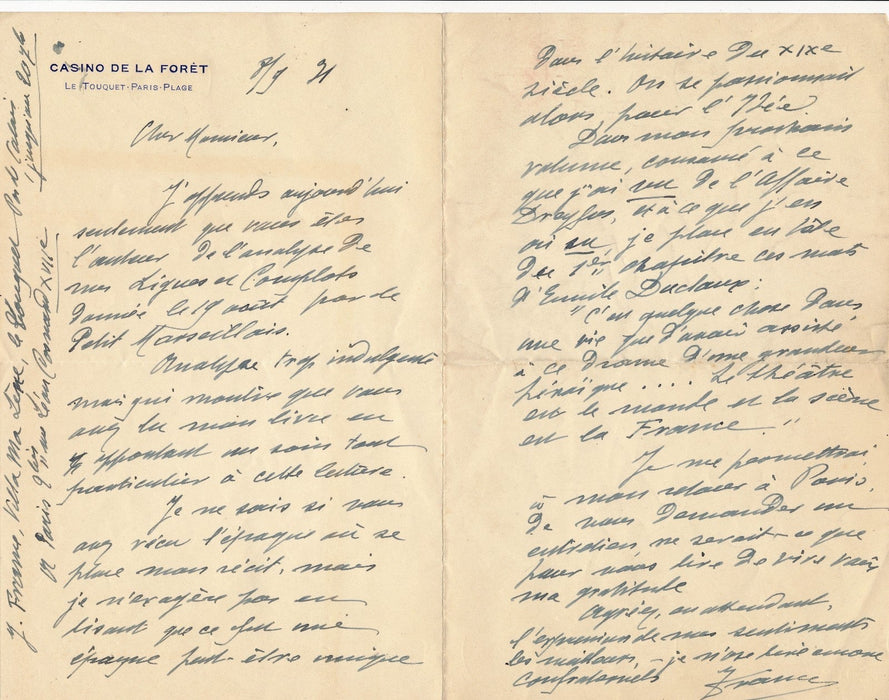 CASINO DE LA FORÊT
LE TOUQUET-PARIS-PLAGE
8/9 31
Cher Monsieur,
J'apprends aujourd'hui
seulement que vous êtes
l'auteur de l'analyse de
mes Ligues et Complots
donnée le 19 août par le
Petit Marseillais.
Analyse trop indulgente
mais qui montre que vous
avez lu mon livre en
y apportant un soin tout
particulier à cette lecture.
Je ne sais si vous
avez vécu l'époque où se
place mon récit, mais
je n'exagère pas en
disant que ce fut une
époque peut-être unique
dans l'histoire du XIXe
siècle. On se passionnait
alors pour l'Idée.
Dans mon prochain
volume, consacré à ce
que j'ai vu de l'Affaire
Dreyfus, et à ce que j'en
ai su, je place en tête
du 1er chapitre ces mots
d'Emile Duclaux :
"C'est quelque chose dans
une vie que d'avoir assisté
à ce drame d'une grandeur
héroïque .... Le théâtre
est le monde et la scène
est la France."
Je me permettrai
à mon retour à Paris,
de vous demander un
entretien ne serait-ce que
pour vous dire de vive voix
ma gratitude
Agréez, en attendant,
l'expression de mes sentiments
les meilleurs, - je n'ose dire encore
confraternels
J France
J. France, Villa Ma Lène, le Touquet Pas de Calais
jusqu'au 20 7bre
et Paris 9 bis rue Léon XVIIe